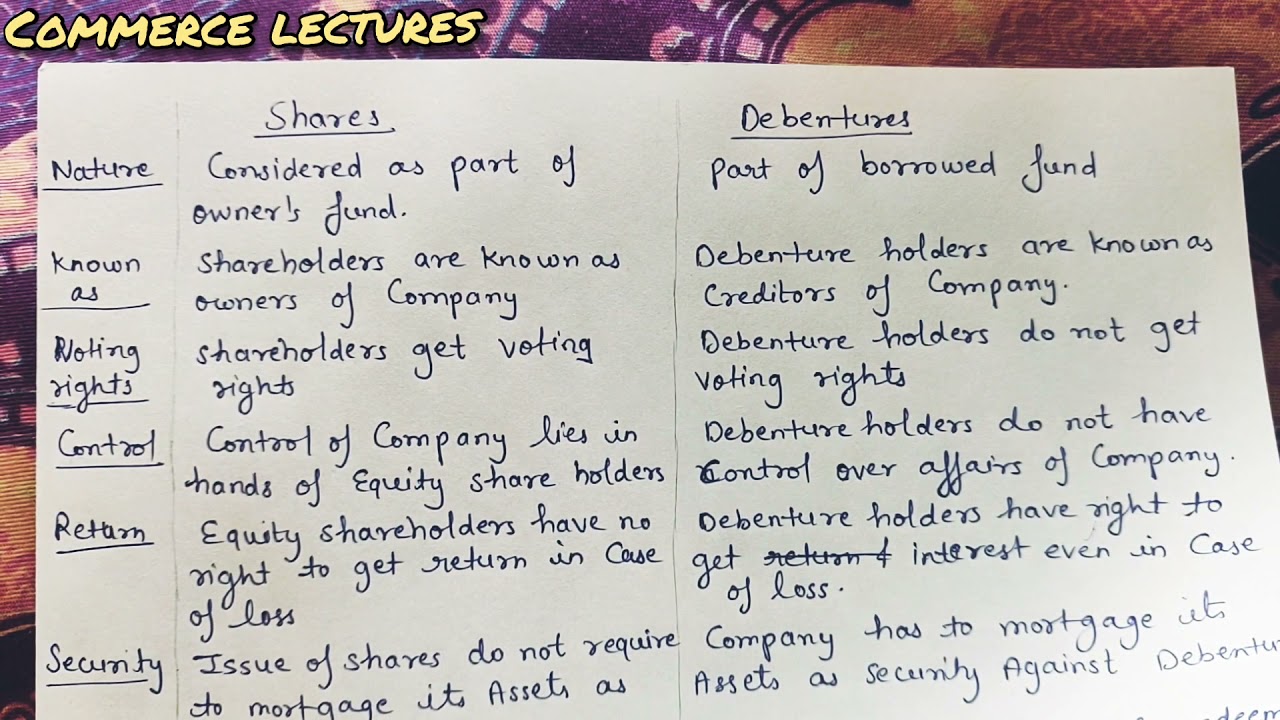 COMMERCE LECTURES
Shares
Debentures
Nature
Considered as part of
owner's fund.
part of borrowed fund
Known
as
Shareholders are known as
owners of Company
Debenture holders are known as
Creditors of Company.
Voting
rights
shareholders get voting
rights
Debenture holders do not get
voting rights
Control
Control of Company lies in
hands of Equity share holders
Debenture holders do not have
control over affairs of Company.
Return
Equity shareholders have no
right to get return in Case
of loss
Debenture holders have right to
get return & interest even in Case
of loss.
Security
Issue of shares do not require
to mortgage its Assets as
Company has to mortgage its
Assets as security Against Debentu